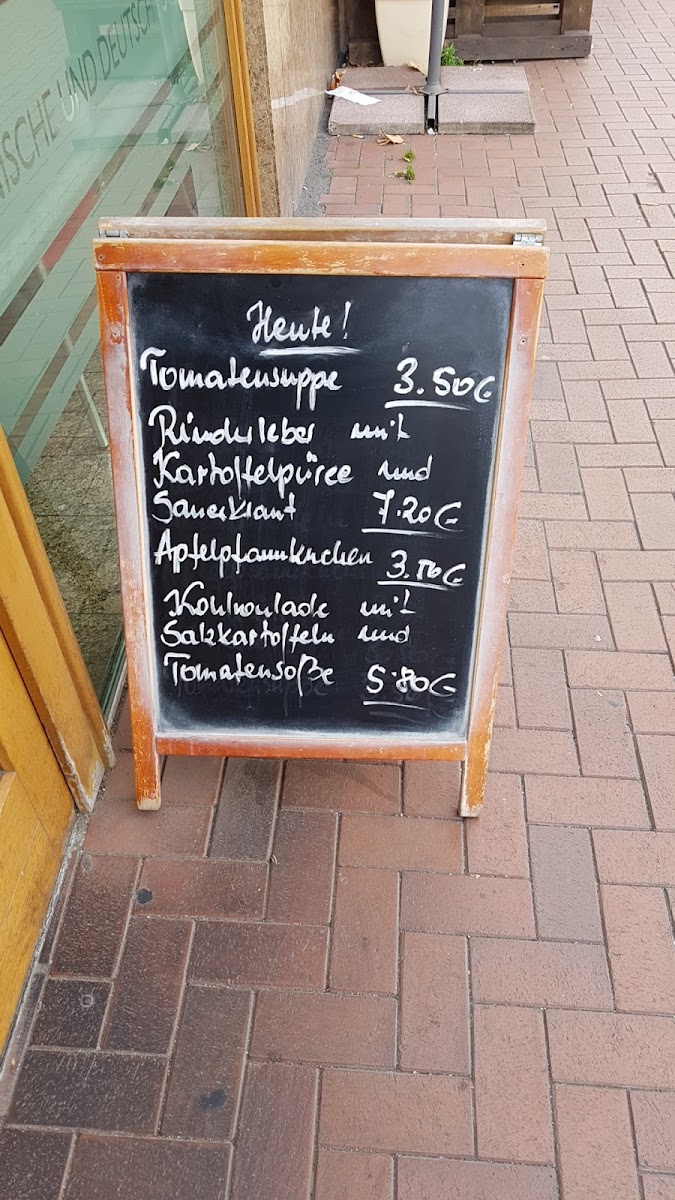 NISCHE UND DEUTSCH
Heute!
Tomatensuppe 3.50€
Rinderleber mit
Kartoffelpüree und
Sauerkraut 7.20€
Apfelpfannkuchen
Kohlroulade mit
Salzkartoffeln und
Tomatensoße 5.80€